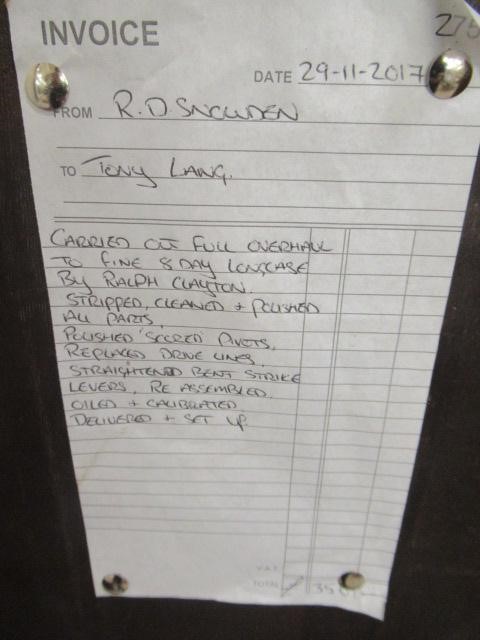 INVOICE
DATE 29-11-2017
FROM R.D. SNOWDEN
TO TONY LANG.
CARRIED OUT FULL OVERHAUL
TO FINE 8 DAY LONGCASE
By RALPH CLAYTON.
STRIPPED, CLEANED + POLISHED
ALL PARTS,
POLISHED 'SCORED' PIVOTS,
REPLACED DRIVE LINES,
STRAIGHTENED BENT STRIKE
LEVERS, RE ASSEMBLED,
OILED + CALIBRATED
DELIVERED + SET UP
V.A.T.
TOTAL